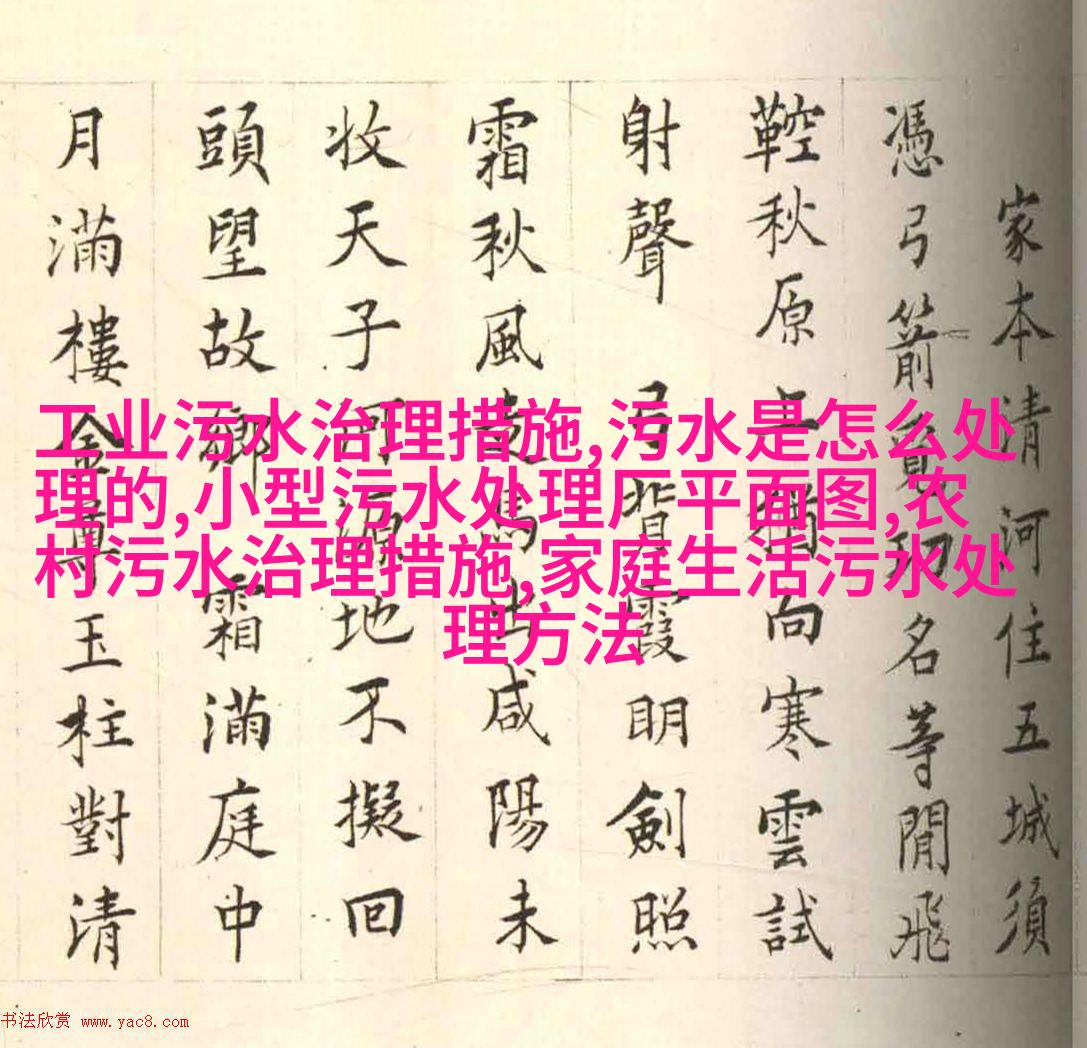 家本清河住五城須
憑弓箭覓功名等閒飛
鞚秋原上獨向寒雲試
射聲 弓背霞明劍照
霜秋風走馬出咸陽未
收天子河源地不擬回
頭望故鄉霜滿庭中
月滿樓金尊玉柱對清
工业污水治理措施,污水是怎么处
理的,小型污水处理厂平面图,农
村污水治理措施,家庭生活污水处
理方法
书法欣赏 www.yac8.com